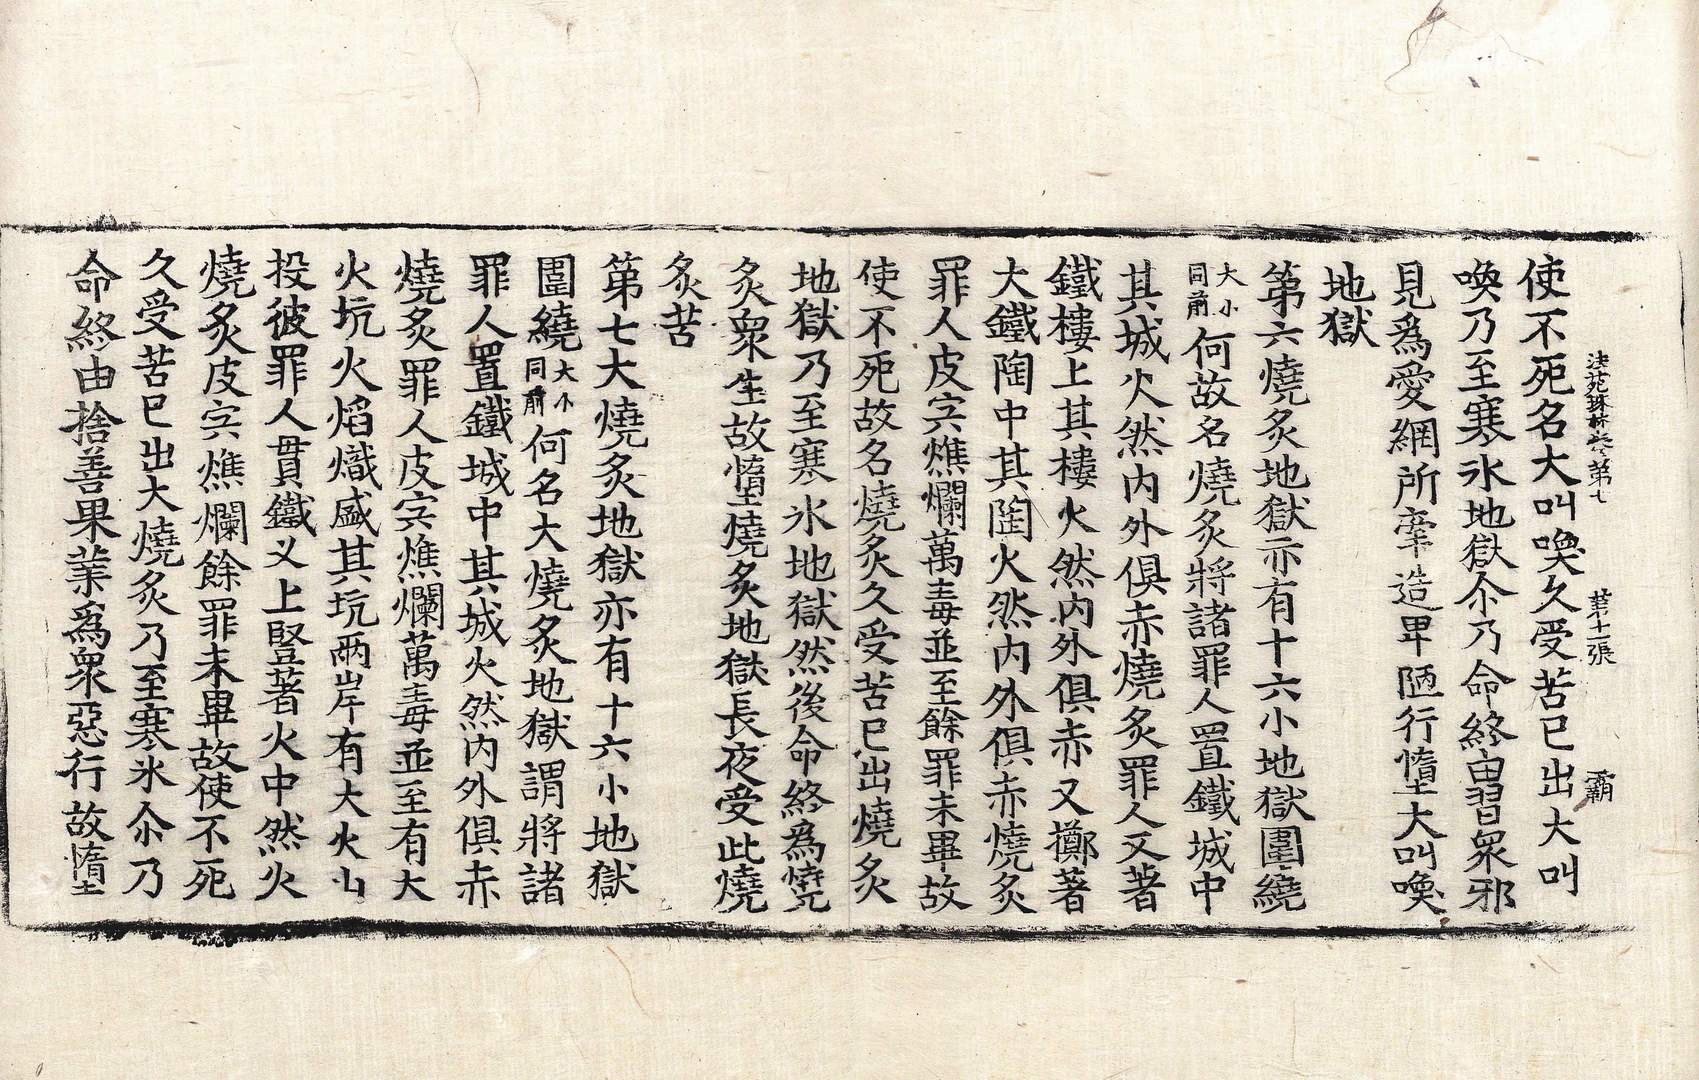 法苑珠林卷第七　第十一張　霸
使不死名大叫喚久受苦已出大叫
喚乃至寒氷地獄尒乃命終由習衆邪
見爲愛網所牽造卑陋行墮大叫喚
地獄
第六燒炙地獄亦有十六小地獄圍繞
大小同前何故名燒炙將諸罪人置鐵城中
其城火然內外俱赤燒炙罪人又著
鐵樓上其樓火然內外俱赤又擲著
大鐵陶中其陶火然內外俱赤燒炙
罪人皮宍燋爛萬毒並至餘罪未畢故
使不死故名燒炙久受苦已出燒炙
地獄乃至寒氷地獄然後命終爲燒
炙衆生故墮燒炙地獄長夜受此燒
炙苦
第七大燒炙地獄亦有十六小地獄
圍繞大小同前何名大燒炙地獄謂將諸
罪人置鐵城中其城火然內外俱赤
燒炙罪人皮宍燋爛萬毒並至有大
火坑火焰熾盛其坑兩岸有大火山
投彼罪人貫鐵叉上竪著火中然火
燒炙皮宍燋爛餘罪未畢故使不死
久受苦已出大燒炙乃至寒氷尒乃
命終由捨善果業爲衆惡行故墮